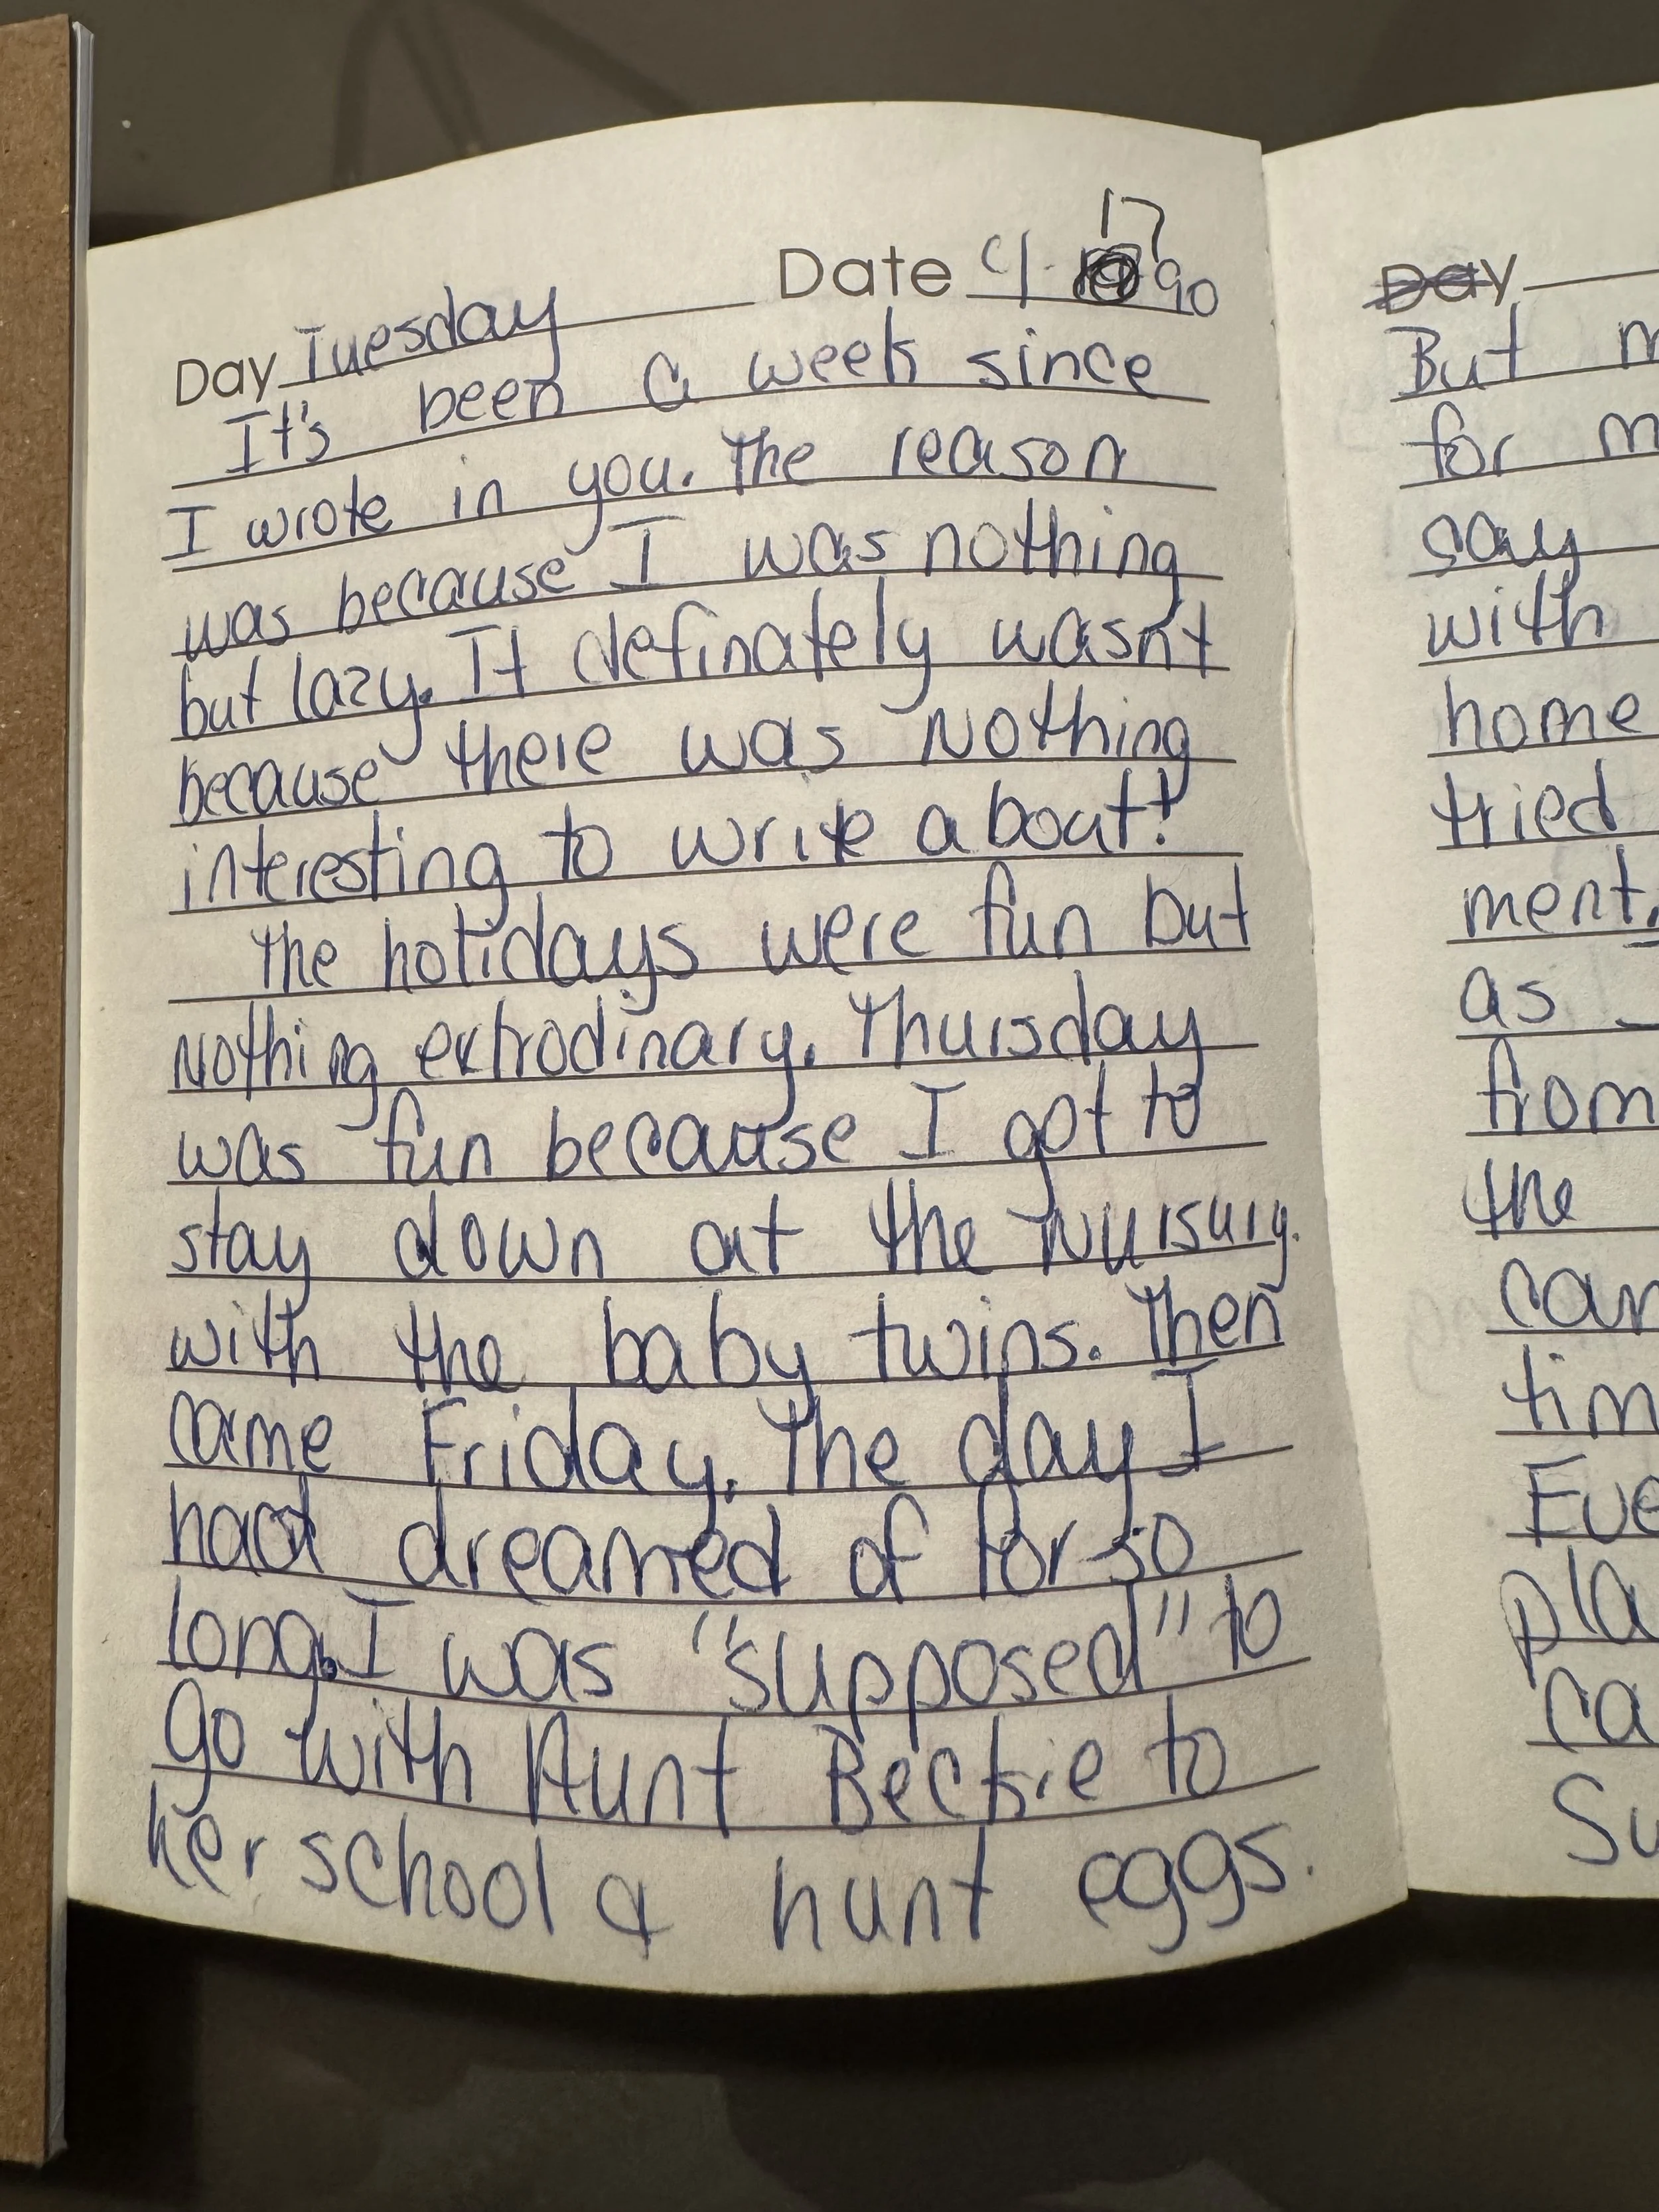 Day Tuesday Date 4-17 90
It's been a week since
I wrote in you. The reason
was because I was nothing
but lazy. It definately wasn't
because there was nothing
interesting to write about!
The holidays were fun but
nothing extrodinary. Thursday
was fun because I got to
stay down at the nursury
with the baby twins. Then
came Friday. The day I
had dreamed of for so
long. I was "supposed" to
go with Aunt Beckie to
her school & hunt eggs.
Day
But
for
say
with
home
tried
ment.
as
from
the
can
tim
Eve
pla
ca
Su